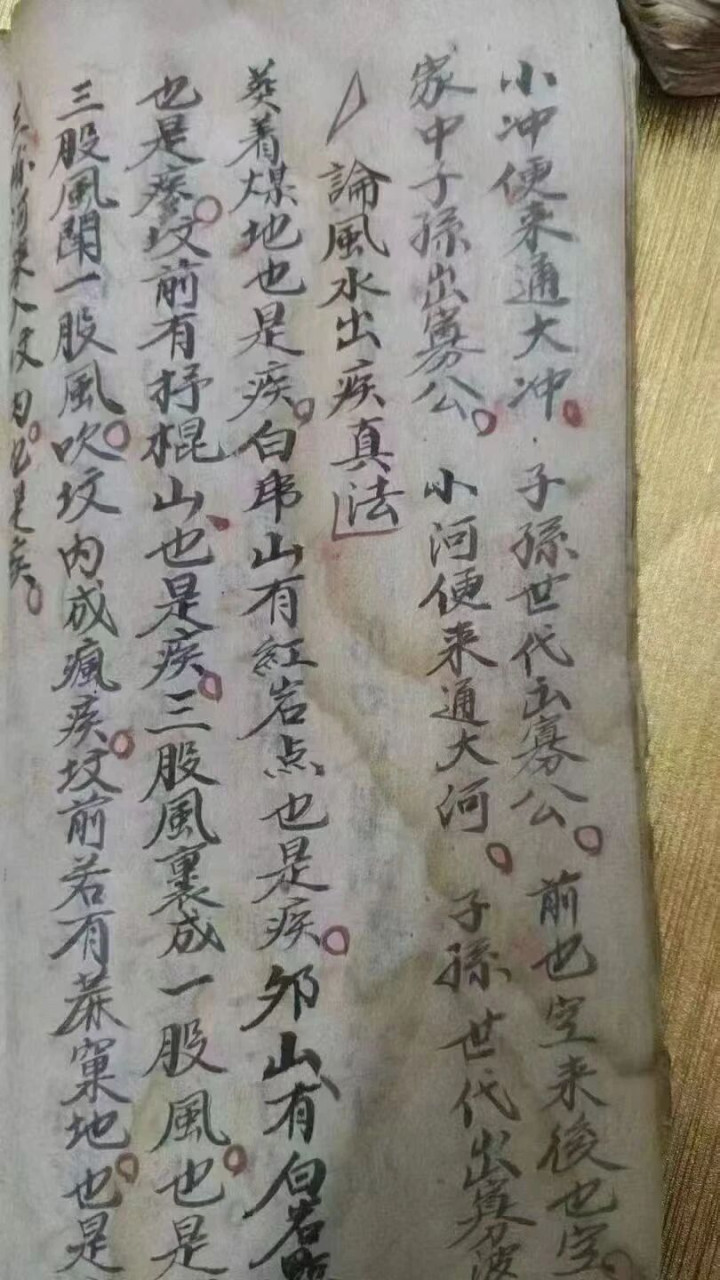 小冲便来通大冲 子孫世代出寡公 前也空来後也空
家中子孫出寡公 小河便来通大河 子孫世代出寡婆
論風水出疾真法
葬着煤地也是疾 白帝山有紅岩点也是疾 邜山有白岩
也是疾 坟前有抒棍山也是疾 三股風裹成一股風也是
三股風閗一股風吹坟内成瘋疾 坟前若有蔴窠地也是